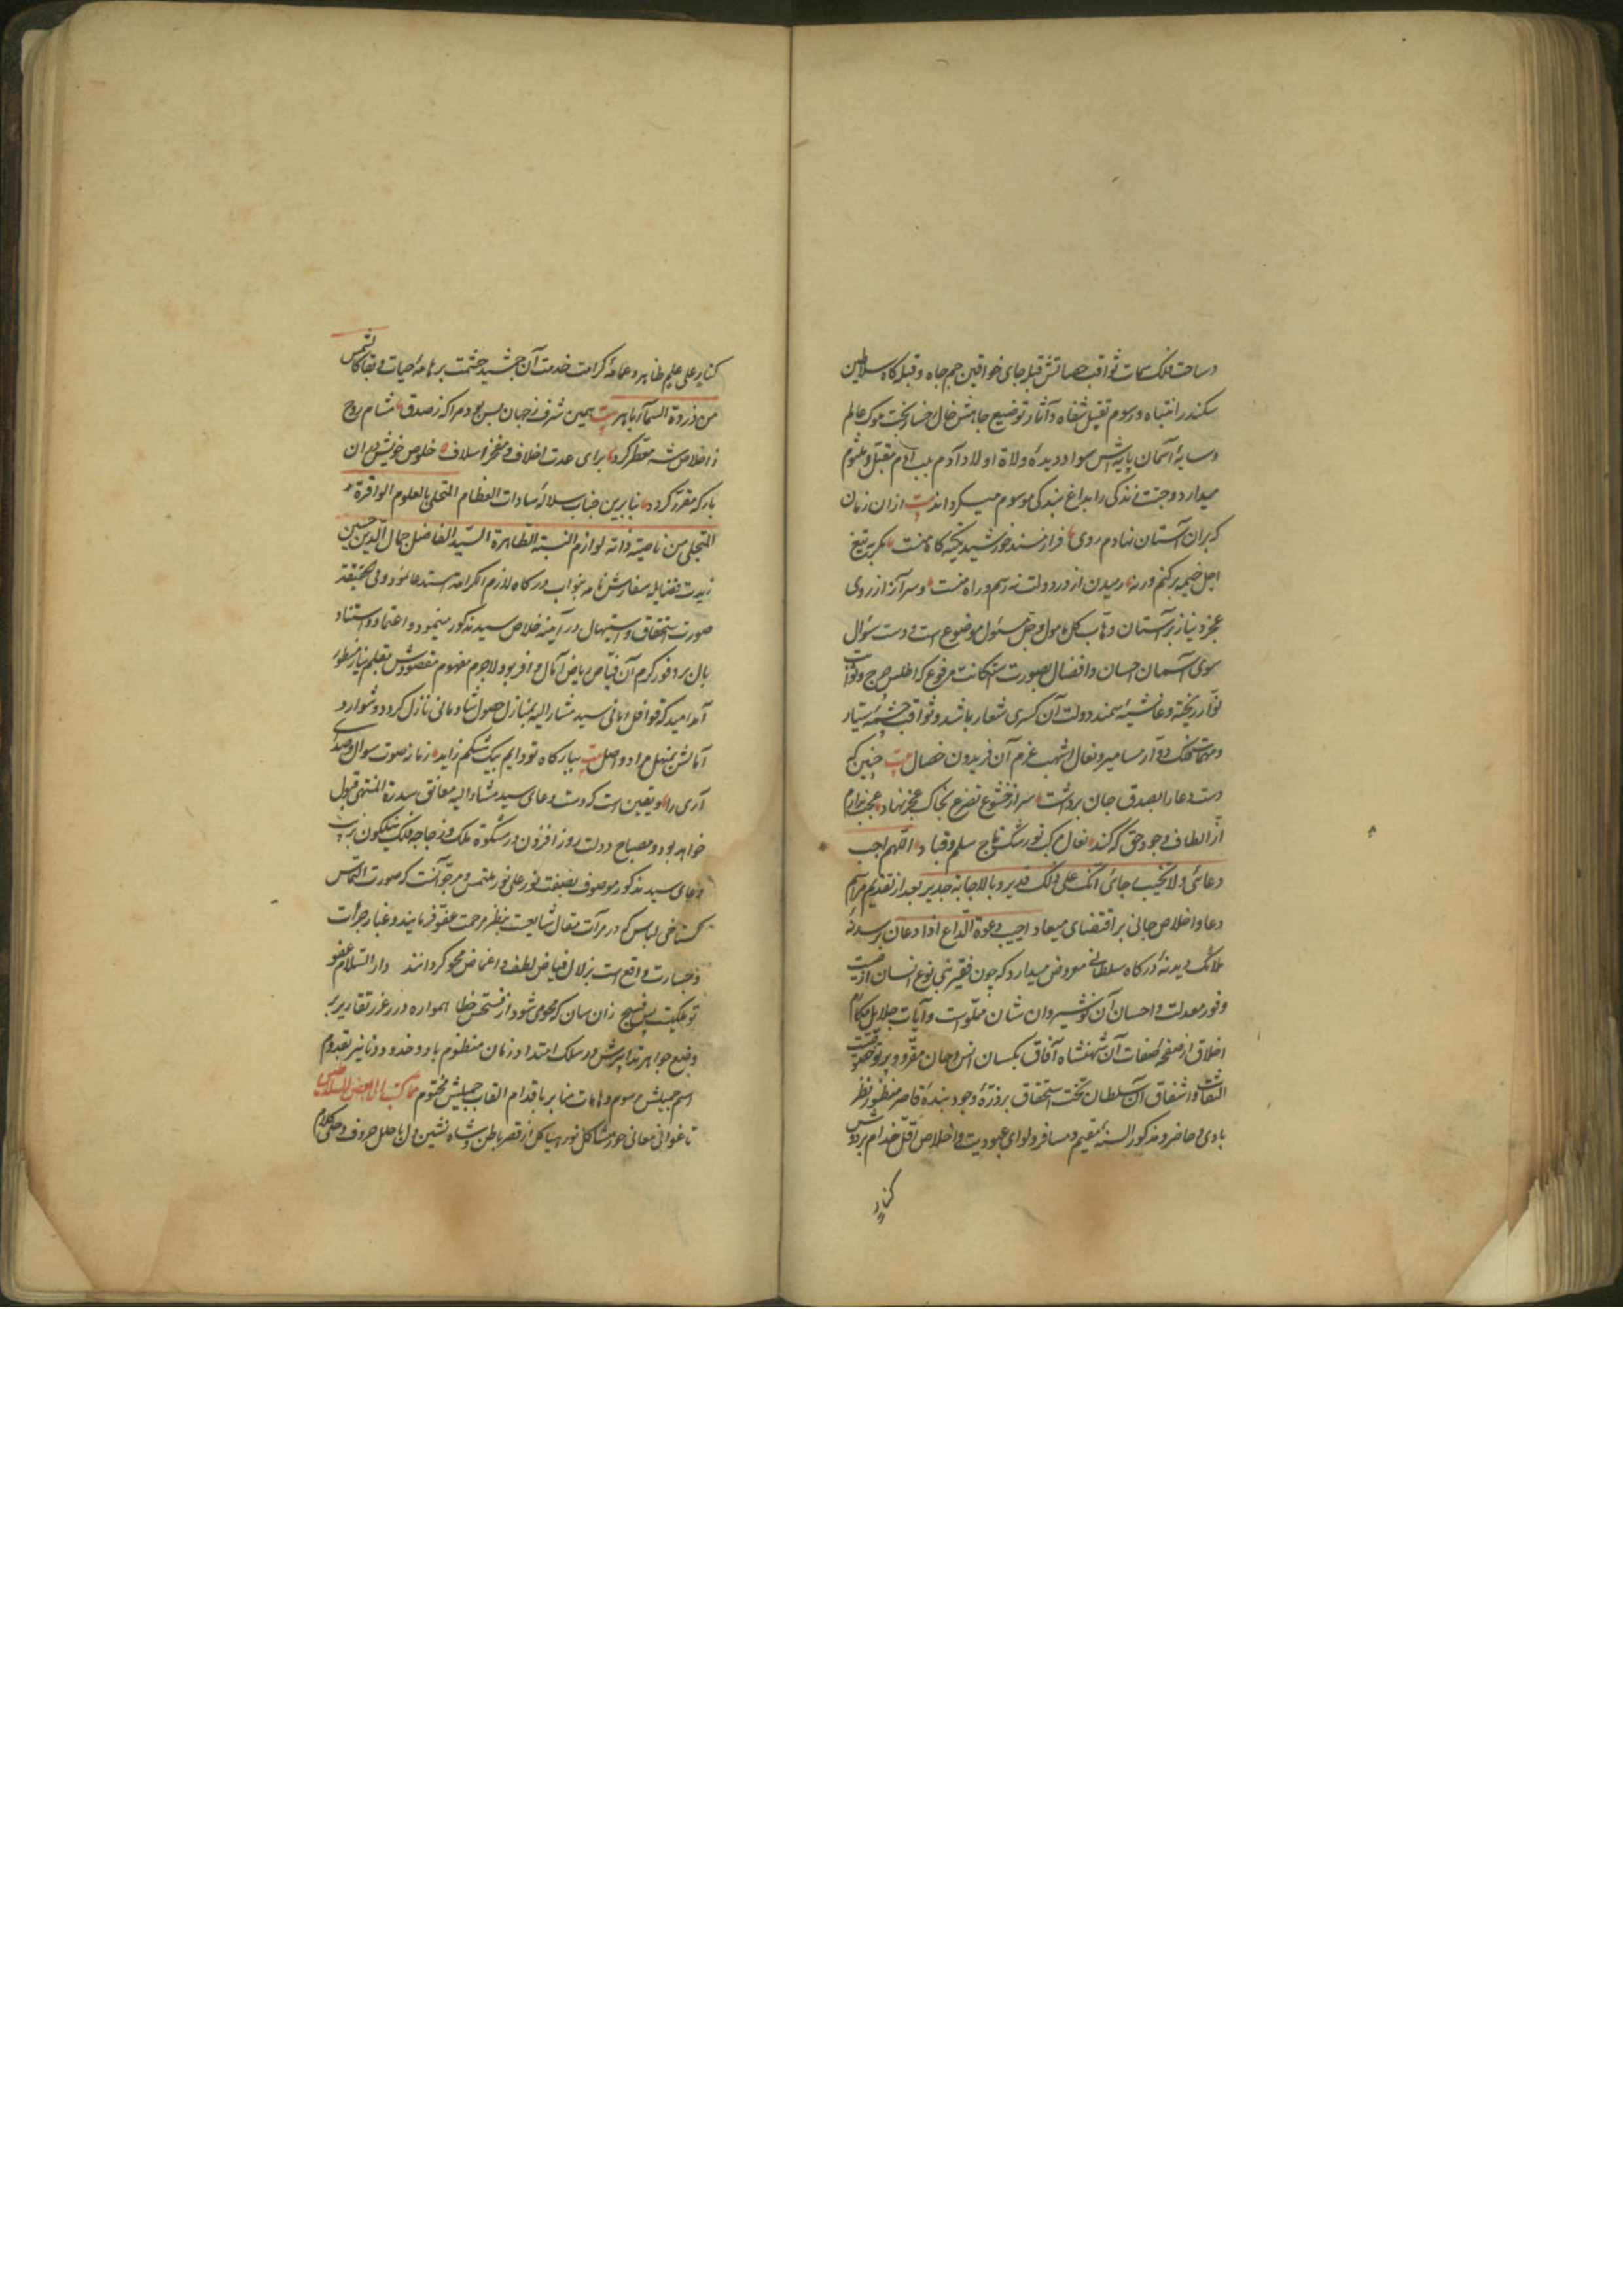 وساحت فلک سمات ثواقب حصاتش قبله جای خواقین جم جاه و قبله کاه سلاطین
سکندر انتباه و رسوم تقبیل شفاه و آثار توضیع جاهش خال رخسار بخت ملوک عالم
وسایهٔ آسمان پایه‌اش سواد دیدهٔ ولاة اولاد آدم بلب آدم مقبل و ملثوم
میدارد وجبهت زندگی را بداغ بندگی موسوم میکرداند بیت ازان زمان
که بران آستان نهادم روی فراز مسند خورشید تکیه کاه منست مکر به تیغ
اجل خیمه برکنم ورنه رمیدن از در دولت نه رسم و راه منست و سر آز از روی
عجز و نیاز بر آستان وهاب کل مامول و جل مسئول موضوع است و دست سؤال
سوی آسمان احسان و افضال بصورت استکانت مرفوع که اطلس چرخ و
زر ریخته و غاشیهٔ سمند دولت آن کسری شعار باشد و ثواقب چشمهٔ سیار
فلک دوار مسامیر و نعال اشهب عزم آن فریدون خصال بیت چنین که
دست دعا را بصدق جان برداشت سر از خشوع تضرع بخاک عجز نهاد عجب ندارم
از الطاف وجود حق که کند نعال مرکب تو رشک تاج سلم و قباد اللهم اجب
دعائی ولا تخیب رجائی انک علی ذلک قدیر و بالاجابة جدیر بعد از تقدیم مراسم
دعا و اخلاص جانی بر اقتضای میعاد اجیب دعوة الداع اذا دعان بر سدنهٔ
ملائک دیدنهٔ درکاه سلطانی معروض میدارد که چون فقیر بنی نوع انسان از
وفور معدلت و احسان آن نوشیروان شان مملوست و آیات جلایل مکارم
اخلاق از صفحهٔ صفات آن شهنشاه آفاق بلسان انس و جان مقرو و پرتو
التفات و اشفاق آن سلطان تخت استحقاق بر ذرهٔ وجود بندهٔ قاصر منظور نظر
بادی و حاضر و مذکور السنهٔ مقیم و مسافر و لوای عبودیت و اخلاص اقل خدام بر دوش
کنار
کنار علی علم ظاهر و عمامهٔ کرامت خدمت آن جمشید حشمت بر هامهٔ حیات و بقا کالشمس
من ذروة السماء باهر بیت همین شرف ز جهان بس بود مرا که ز صدق مشام روح
ز اخلاص شه معطر کرد برای عدت اخلاف و مفخر اسلاف خلوص خویش دران
بارکه مقرر کرد بنابرین جناب سلالهٔ سادات العظام المتحلی بالعلوم الوافرة
المتجلی من ناصیته ذاته لوازم النسبة الطاهرة السید الفاضل جمال الدین حسین
زیدت فضایله سفارش نامه بنواب درکاه لازم الکرامه استدعا نمود و فی الحقیقة
صورت استحقاق و استیهال در آینه خلاص سید مذکور مینمود و اعتماد و استناد
بال بر وفور کرم آن فیاض ریاض آمال وافر بود لاجرم مفهوم مقصودش بقلم نیاز مسطور
آمد امید که قوافل امانی سید مشار الیه بمنازل حصول شادمانی نازل کردد و شوارد
آمالش بمنهل مراد واصل بیت ببارکاه تو دایم بیک شکم زاید زمانه صوت سوال و صدای
آری را و یقین است که دست دعای سید مشار الیه معانق سدرة المنتهی قبول
خواهد بود و مصباح دولت روز افزون در مشکوة ملک و زجاجه فلک نیلکون بزیت
دعای سید مذکور موصوف بصفت نور علی نور ملتمس و مرجو آنست که صورت التماس
کستاخی لباس که در مرآت مقال شایعست بنظر مرحمت عفو فرمایند و غبار جرأت
و جسارت واقع است بزلال فیاض لطف و اغماض محو کردانند دار السلام عفو
تو جائیست بس فسیح زان سان که محو می‌شود از فسحتش خطا همواره درر غرر تقاریر
وضیع جواهر تدابیرش در سلک امتداد زمان منظوم باد و خدود دنانیر بقدوم
اسم جمیلش مرسوم و هامات منابر باقدام القاب جمیلش مختوم مما کتب الی بعض السلاطین
تا غوانی معانی حور مشاکل نور هیاکل از قصر باطن و شاه نشین دل با حلل حروف و حلی کلام